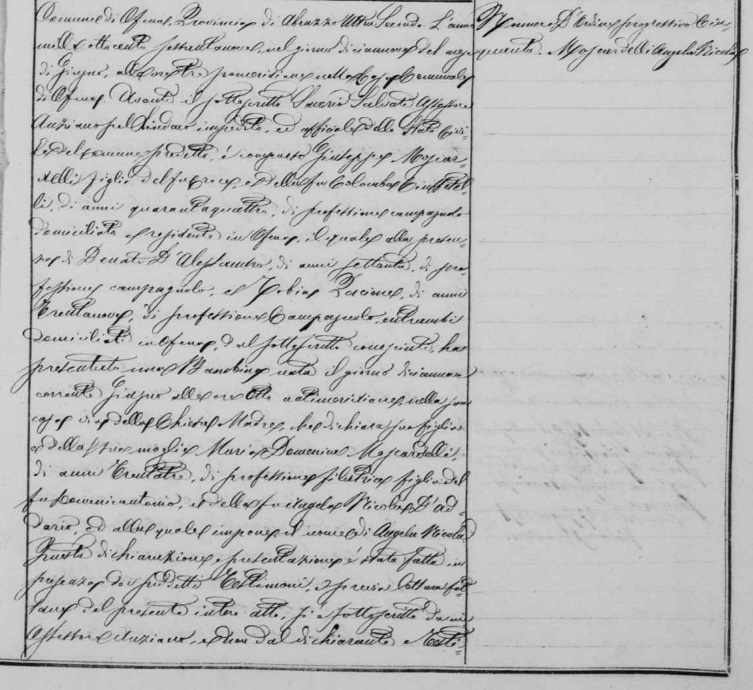 Comune di Ofena, Provincia di Abruzzo Ultra Secondo. L'anno
mille ottocento settantanove, nel giorno diciannove del mese
di Giugno, alle ore tre pomeridiane nella Casa Comunale
di Ofena. Avanti il sottoscritto Saverio Salvati Assessore
Anziano pel Sindaco impedito, ed officiale dello Stato Civi-
le del comune predetto, è comparso Giuseppe Moscar-
delli figlio del fu e della fu Colomba
li, di anni quarantaquattro, di professione campagnolo
domiciliato e residente in Ofena, il quale alla presen-
za di Donato D'Alessandro, di anni settanta, di pro-
fessione campagnolo, e Tobia, di anni
trentanove, di professione Campagnolo, entrambi
domiciliati in Ofena, dal sottoscritto conosciuti, ha
presentato una Bambina nata il giorno diciannove
corrente Giugno alle ore otto antimeridiane nella sua
casa della Chiesa Madre, che dichiara sua figlia
e della sua moglie Maria Domenica Moscardelli,
di anni trentatre, di professione filatrice figlia del
fu Domenicantonio, e della fu Angela Nicola D'ad-
dario, ed alla quale impone il nome di Angela Nicola
Questa dichiarazione e presentazione è stata fatta in
presenza dei predetti Testimoni, e previa lettura fat-
tane del presente intero atto, si è sottoscritto da me
Assessore Anziano, e non dal dichiarante e Testi-
Numero D'Ordine progressivo Cin-
quanta. Moscardelli Angela Nicola